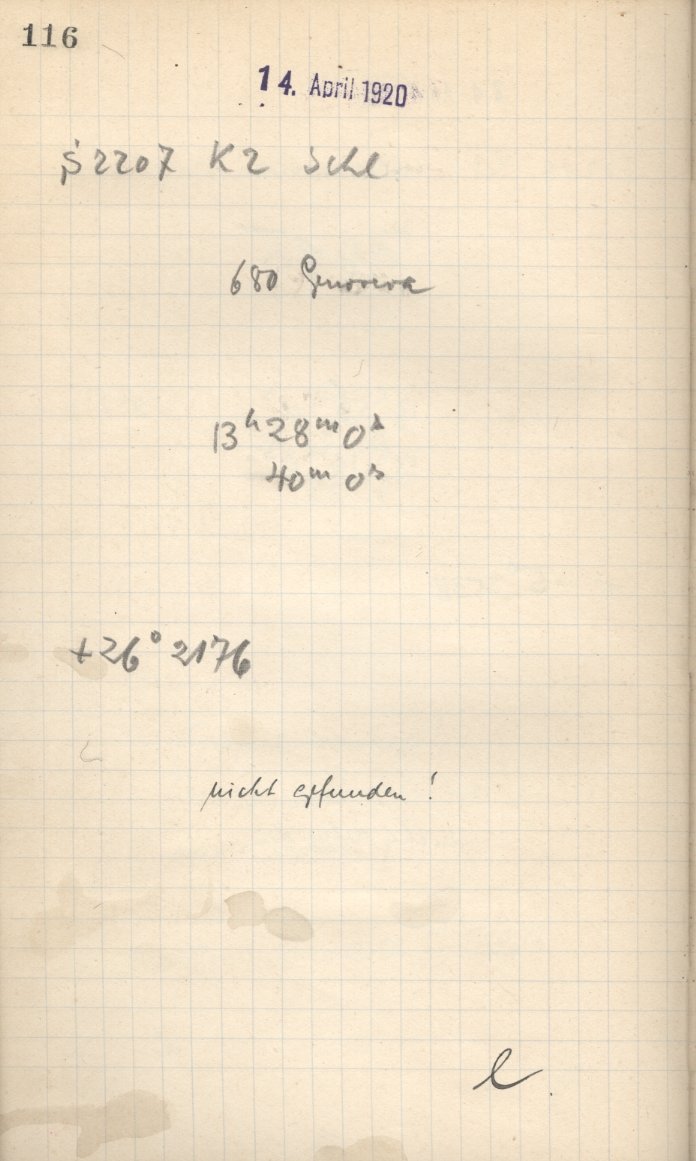 116
14. April 1920
S 2207 K2 Schl
680 Genoveva
13ʰ 28ᵐ 0ˢ
40ᵐ 0ˢ
+26° 2176
nicht gefunden!
l